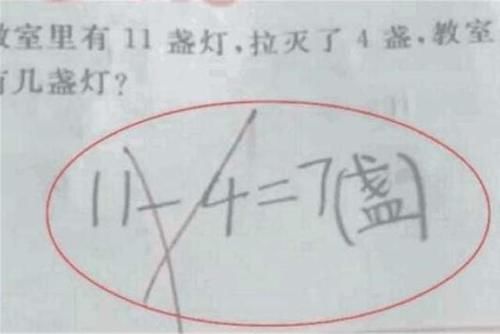 教室里有 11 盏灯,拉灭了 4 盏,教室
有几盏灯?
11-4=7(盏)